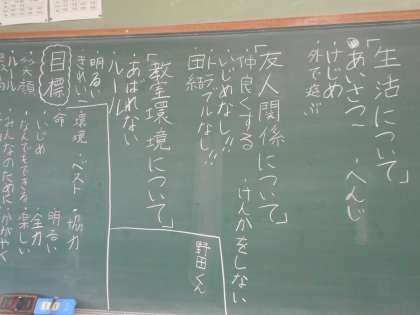 「生活について」
あいさつ へんじ
・けじめ
・外で遊ぶ
「友人関係について」
・仲良くする ・けんかをしない
・いじめなし!!
・トラブルなし!!
・団結
「教室環境について」
・あばれない
・ルール
・明るい
・きれい
野田くん
目標
・笑顔
・ルール
環境 ・ベスト ・協力
命 明るい
・いじめ 全力
・なんでもできる 楽しい
・みんなのために かがやく